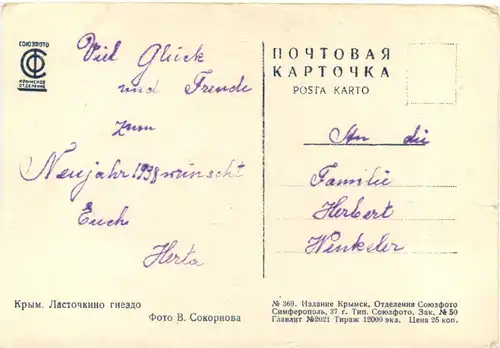 СОЮЗФОТО
КРЫМСКОЕ
ОТДЕЛЕНИЕ
Viel Glück
und Freude
zum
Neujahr 1938 wünscht
Euch
Herta
ПОЧТОВАЯ
КАРТОЧКА
POŜTA KARTO
An die
Familie
Herbert
Winkeler
Крым. Ласточкино гнездо
Фото В. Сокорнова
№ 369. Издание Крымск. Отделения Союзфото
Симферополь, 37 г. Тип. Союзфото. Зак. № 50
Главлит №2021 Тираж 12000 экз. Цена 25 коп.